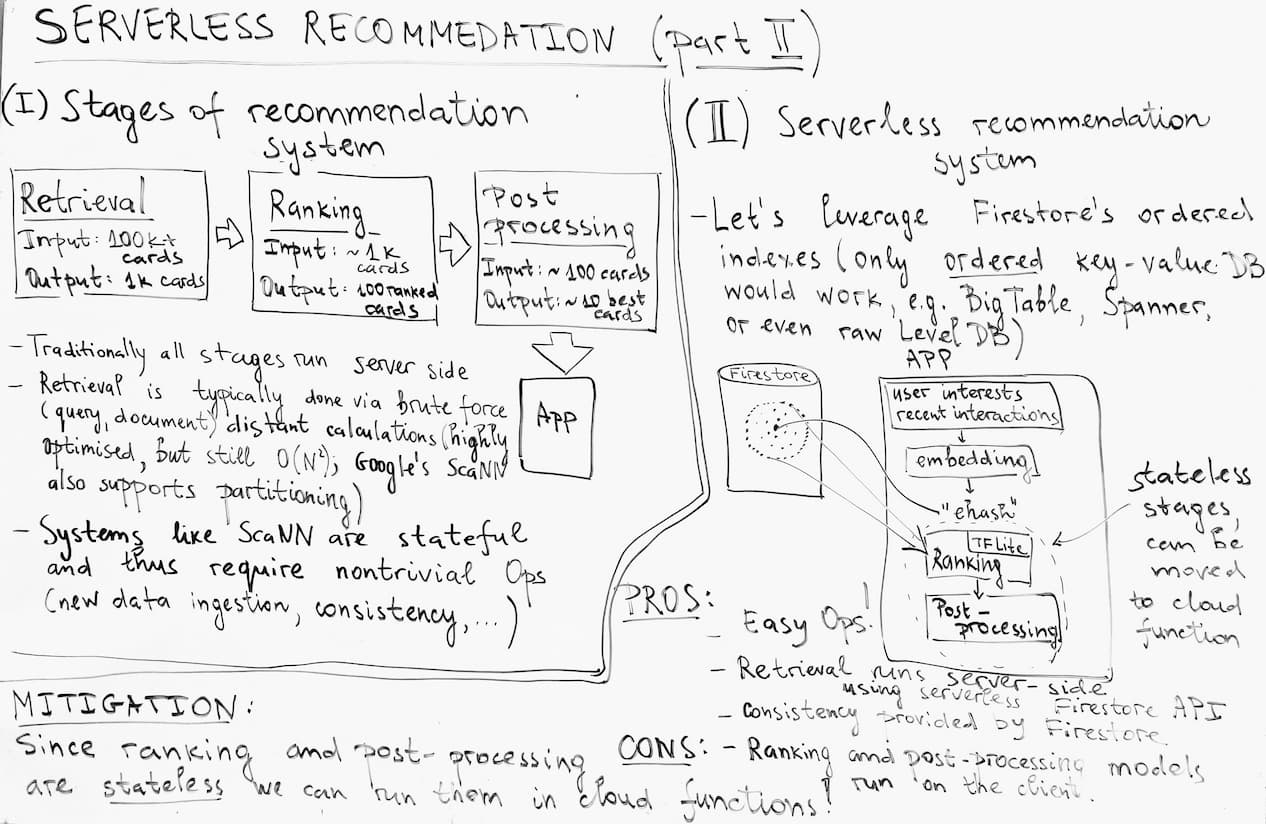 SERVERLESS RECOMMEDATION (part II)
(I) Stages of recommendation
system
Retrieval
Input: 100k+
cards
Output: 1k cards
Ranking
Input: ~1k
cards
Output: 100 ranked
cards
Post
processing
Input: ~100 cards
Output: ~10 best
cards
APP
- Traditionally all stages run server side
- Retrieval is typically done via brute force
(query, document) distant calculations (highly
optimised, but still O(N²); Google's ScaNN
also supports partitioning)
- Systems like ScaNN are stateful
and thus require nontrivial Ops
(new data ingestion, consistency,...)
(II) Serverless recommendation
system
- Let's leverage Firestore's ordered
indexes (only ordered key-value DB
would work, e.g. BigTable, Spanner,
or even raw LevelDB)
APP
Firestore
user interests
recent interactions
embedding
"ehash"
TFLite
Ranking
Post-
processing
stateless
stages,
can be
moved
to cloud
function
PROS:
- Easy Ops!
- Retrieval runs server-side
using serverless Firestore API
- Consistency provided by Firestore
CONS: - Ranking and post-processing models
run on the client.
MITIGATION:
Since ranking and post-processing
are stateless we can run them in cloud functions!